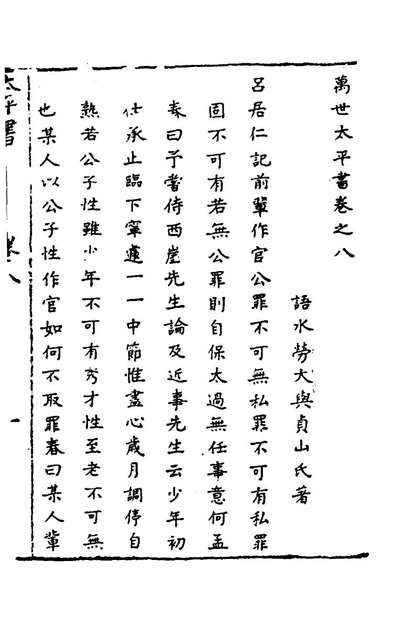 萬世太平書卷之八
語水勞大與貞山氏著
呂居仁記前輩作官公罪不可無私罪不可有私罪
固不可有若無公罪則自保太過無任事意何孟
春曰予嘗侍西崖先生論及近事先生云少年初
仕承止臨下寧遽一一中節惟盡心歲月調停自
熟若公子性雖少年不可有秀才性至老不可無
也某人以公子性作官如何不取罪春曰某人輩
太平書
卷八
一